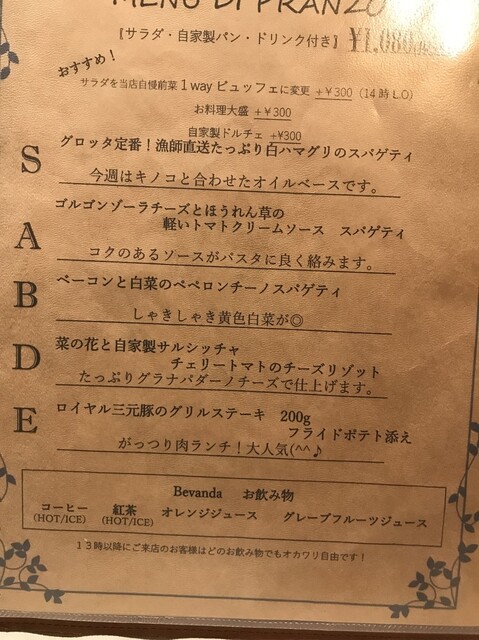 MENU DI PRANZO
〖サラダ・自家製パン・ドリンク付き〗 ¥1,080
おすすめ！
サラダを当店自慢前菜1wayビュッフェに変更 +￥300（14時L.O）
お料理大盛 +￥300
自家製ドルチェ +¥300
S グロッタ定番！漁師直送たっぷり白ハマグリのスパゲティ
今週はキノコと合わせたオイルベースです。
ゴルゴンゾーラチーズとほうれん草の
A 軽いトマトクリームソース スパゲティ
コクのあるソースがパスタに良く絡みます。
B ベーコンと白菜のペペロンチーノスパゲティ
しゃきしゃき黄色白菜が◎
菜の花と自家製サルシッチャ
D チェリートマトのチーズリゾット
たっぷりグラナパダーノチーズで仕上げます。
E ロイヤル三元豚のグリルステーキ 200g
フライドポテト添え
がっつり肉ランチ！大人気(^^♪
Bevanda お飲み物
コーヒー 紅茶 オレンジジュース グレープフルーツジュース
(HOT/ICE) (HOT/ICE)
１３時以降にご来店のお客様はどのお飲み物でもオカワリ自由です！